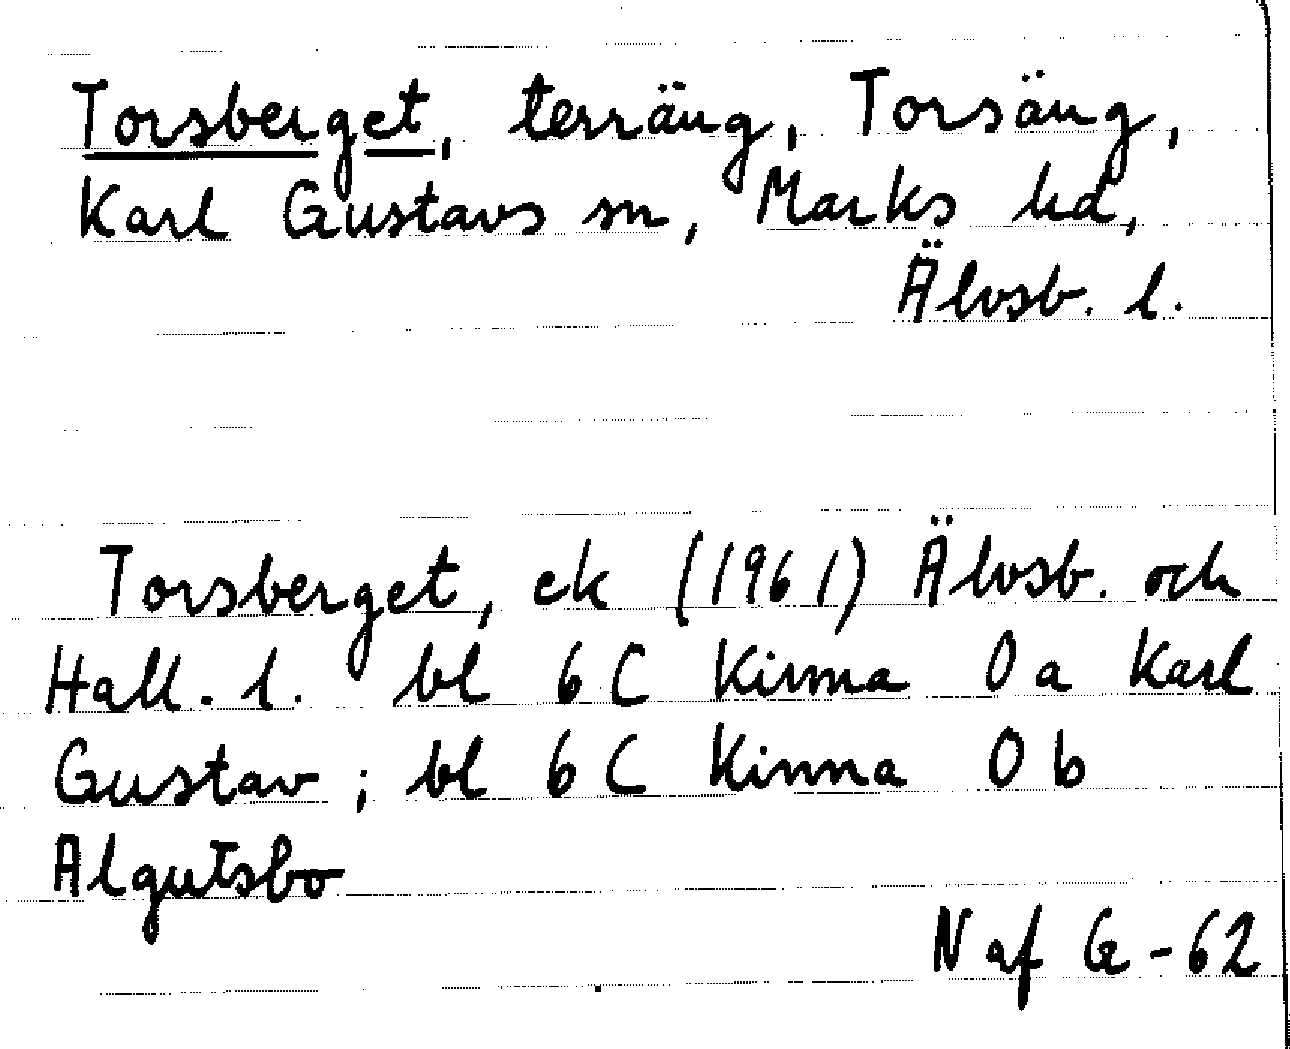 Torsberget, terräng, Torsäng,
Karl Gustavs sn, Marks hd,
Älvsb. l.
Torsberget, ek (1961) Älvsb. och
Hall. l. bl 6 C Kinna 0 a Karl
Gustav ; bl 6 C Kinna 0 b
Algutsbo
N af G-62